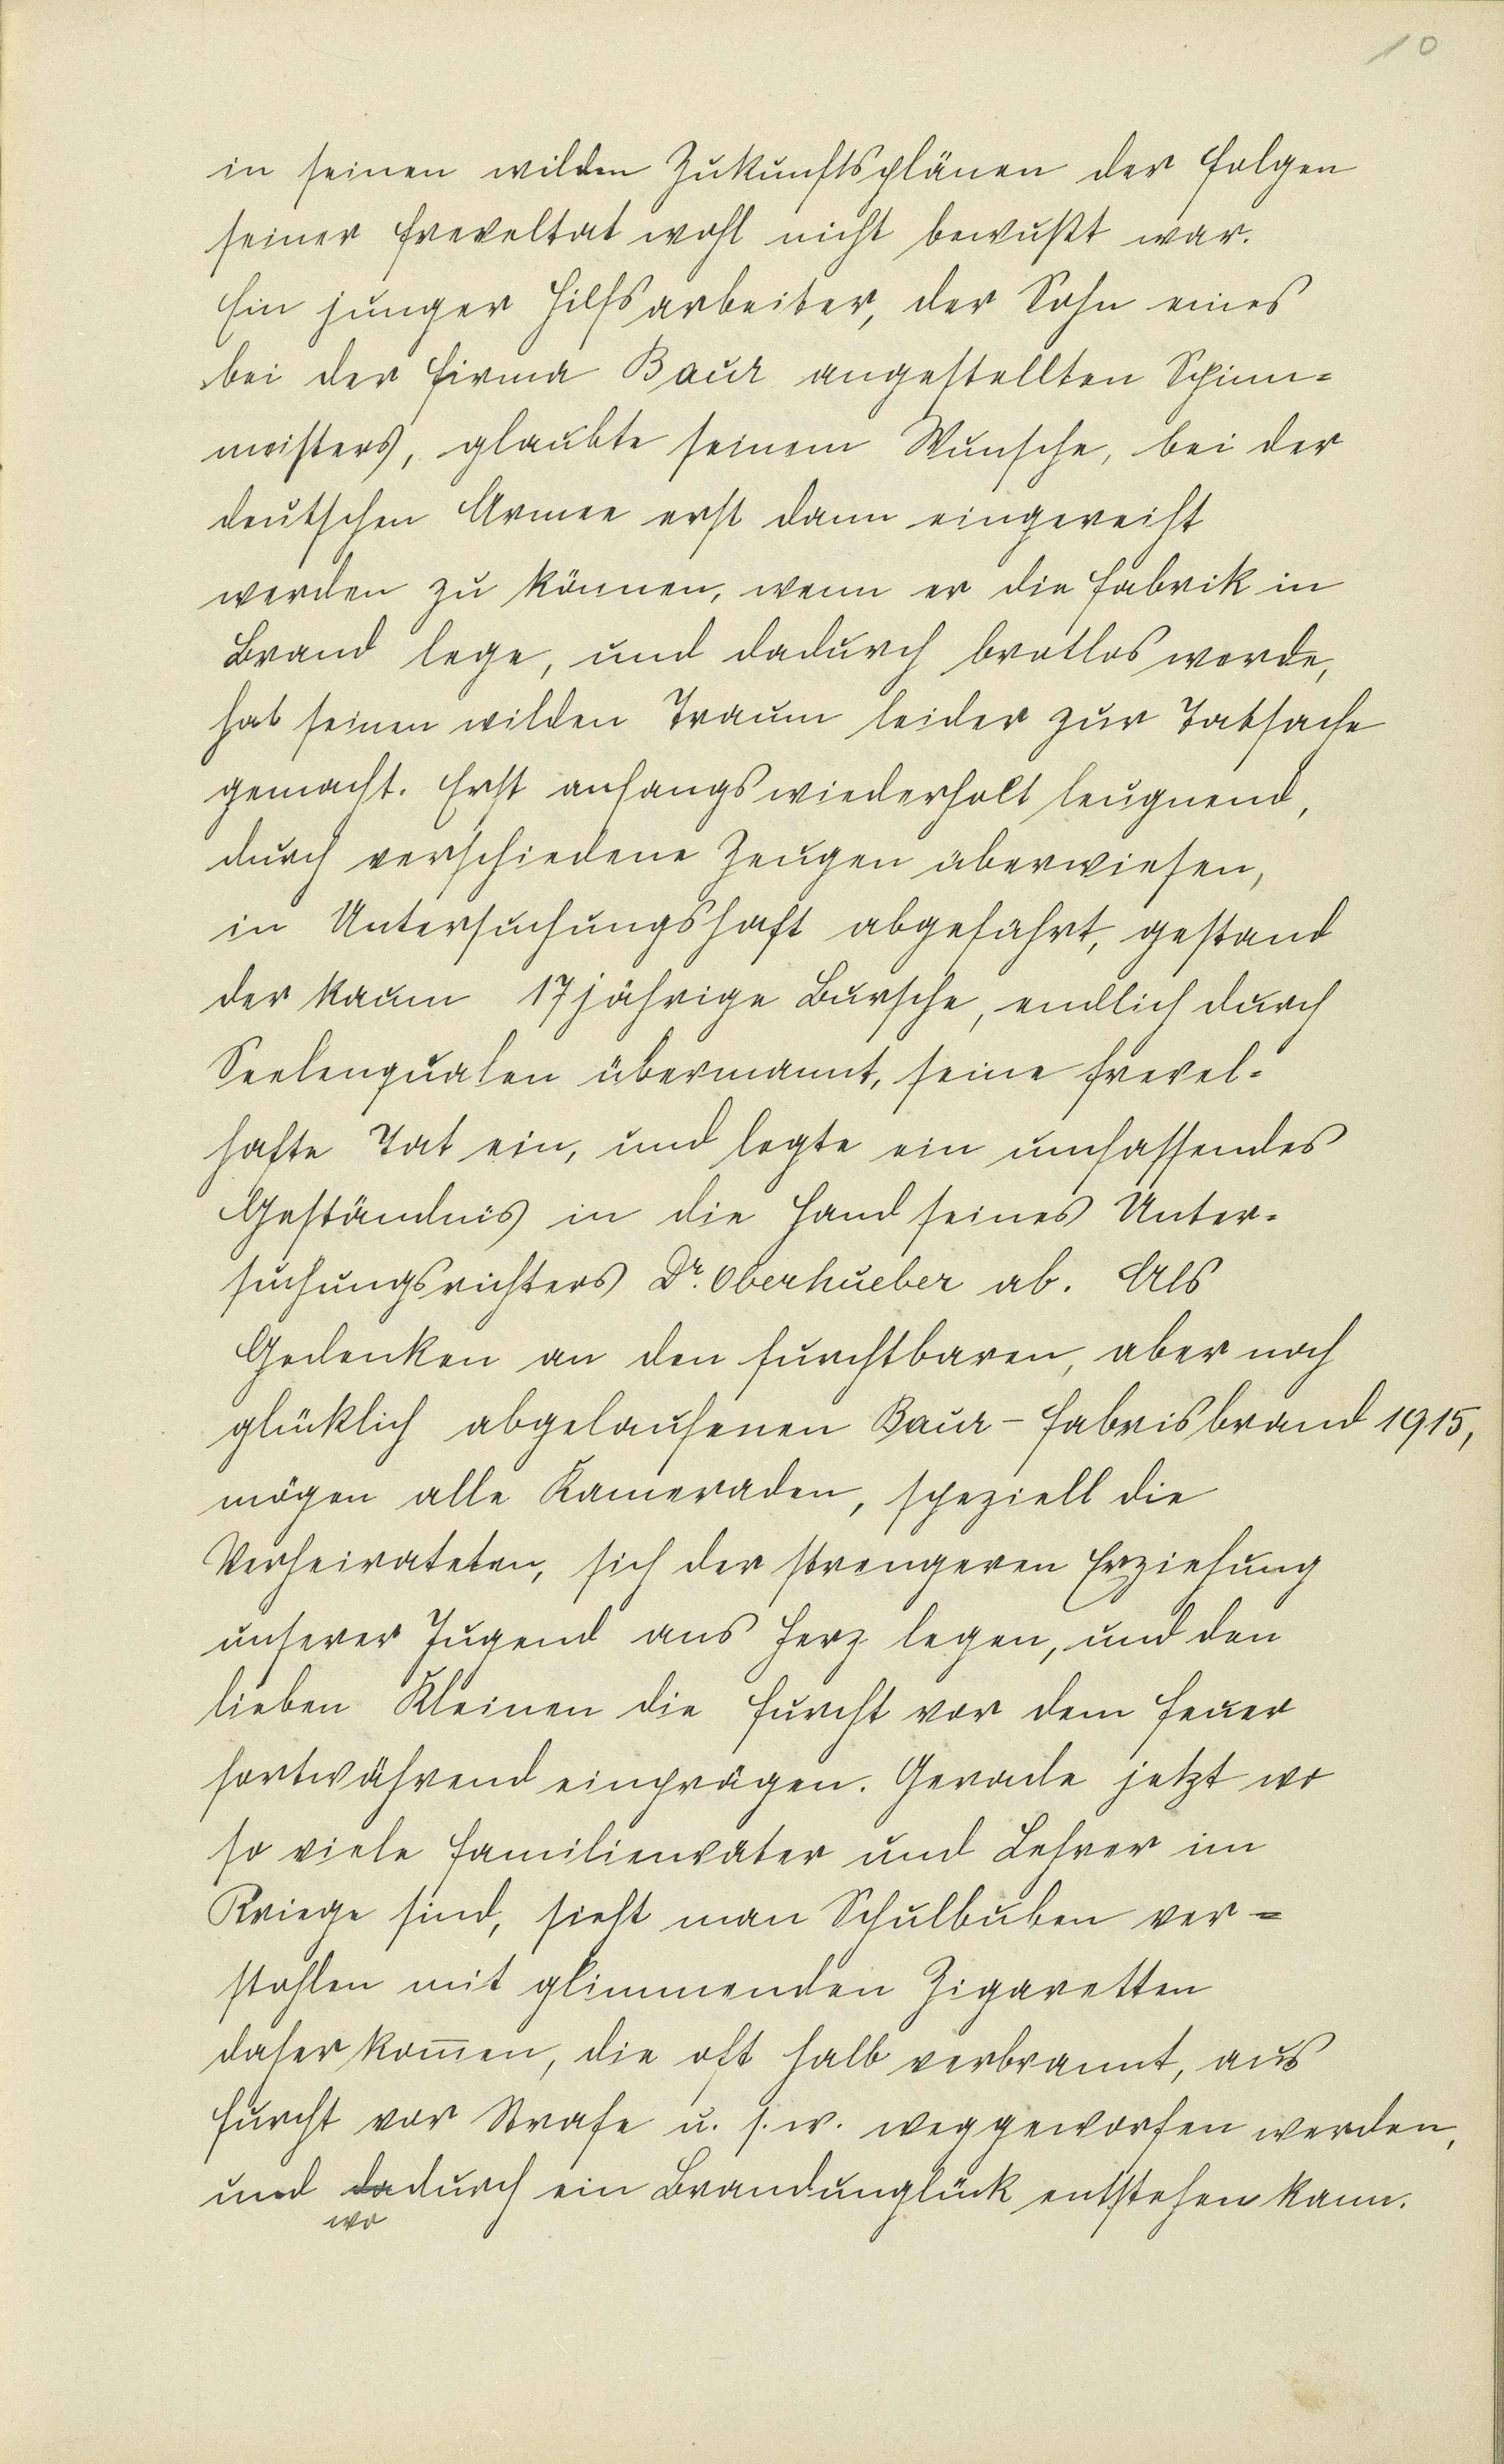 10
in seinen wilden Zukunftsplänen der Folgen
seiner Freveltat wohl nicht bewußt war.
Ein junger Hilfsarbeiter, der Sohn eines
bei der Firma Baur angestellten Spinn=
meisters, glaubte seinem Wunsche, bei der
deutschen Armee erst dann eingereiht
werden zu können, wenn er die Fabrik in
Brand lege, und dadurch brotlos werde,
hat seinen wilden Traum leider zur Tatsache
gemacht. Erst anfangs wiederholt leugnend,
durch verschiedene Zeugen überwiesen,
in Untersuchungshaft abgeführt, gestand
der kaum 17jährige Bursche, endlich durch
Seelenqualen übermannt, seine frevel-
hafte Tat ein, und legte ein umfassendes
Geständnis in die Hand seines Unter-
suchungsrichters Dr. Oberhueber ab. Als
Gedenken an den furchtbaren, aber noch
glücklich abgelaufenen Baur-Fabrisbrand 1915,
mögen alle Kameraden, speziell die
Verheirateten, sich der strengeren Erziehung
unserer Jugend ans Herz legen, und den
lieben Kleinen die Furcht vor dem Feuer
fortwährend einprägen. Gerade jetzt wo
so viele Familienväter und Lehrer im
Kriege sind, sieht man Schulbuben ver=
stohlen mit glimmenden Zigaretten
daher kom̅en, die oft halb verbrannt, aus
Furcht vor Strafe u. s. w. weggeworfen werden,
und dadurch ein Brandunglück entstehen kann.
wo